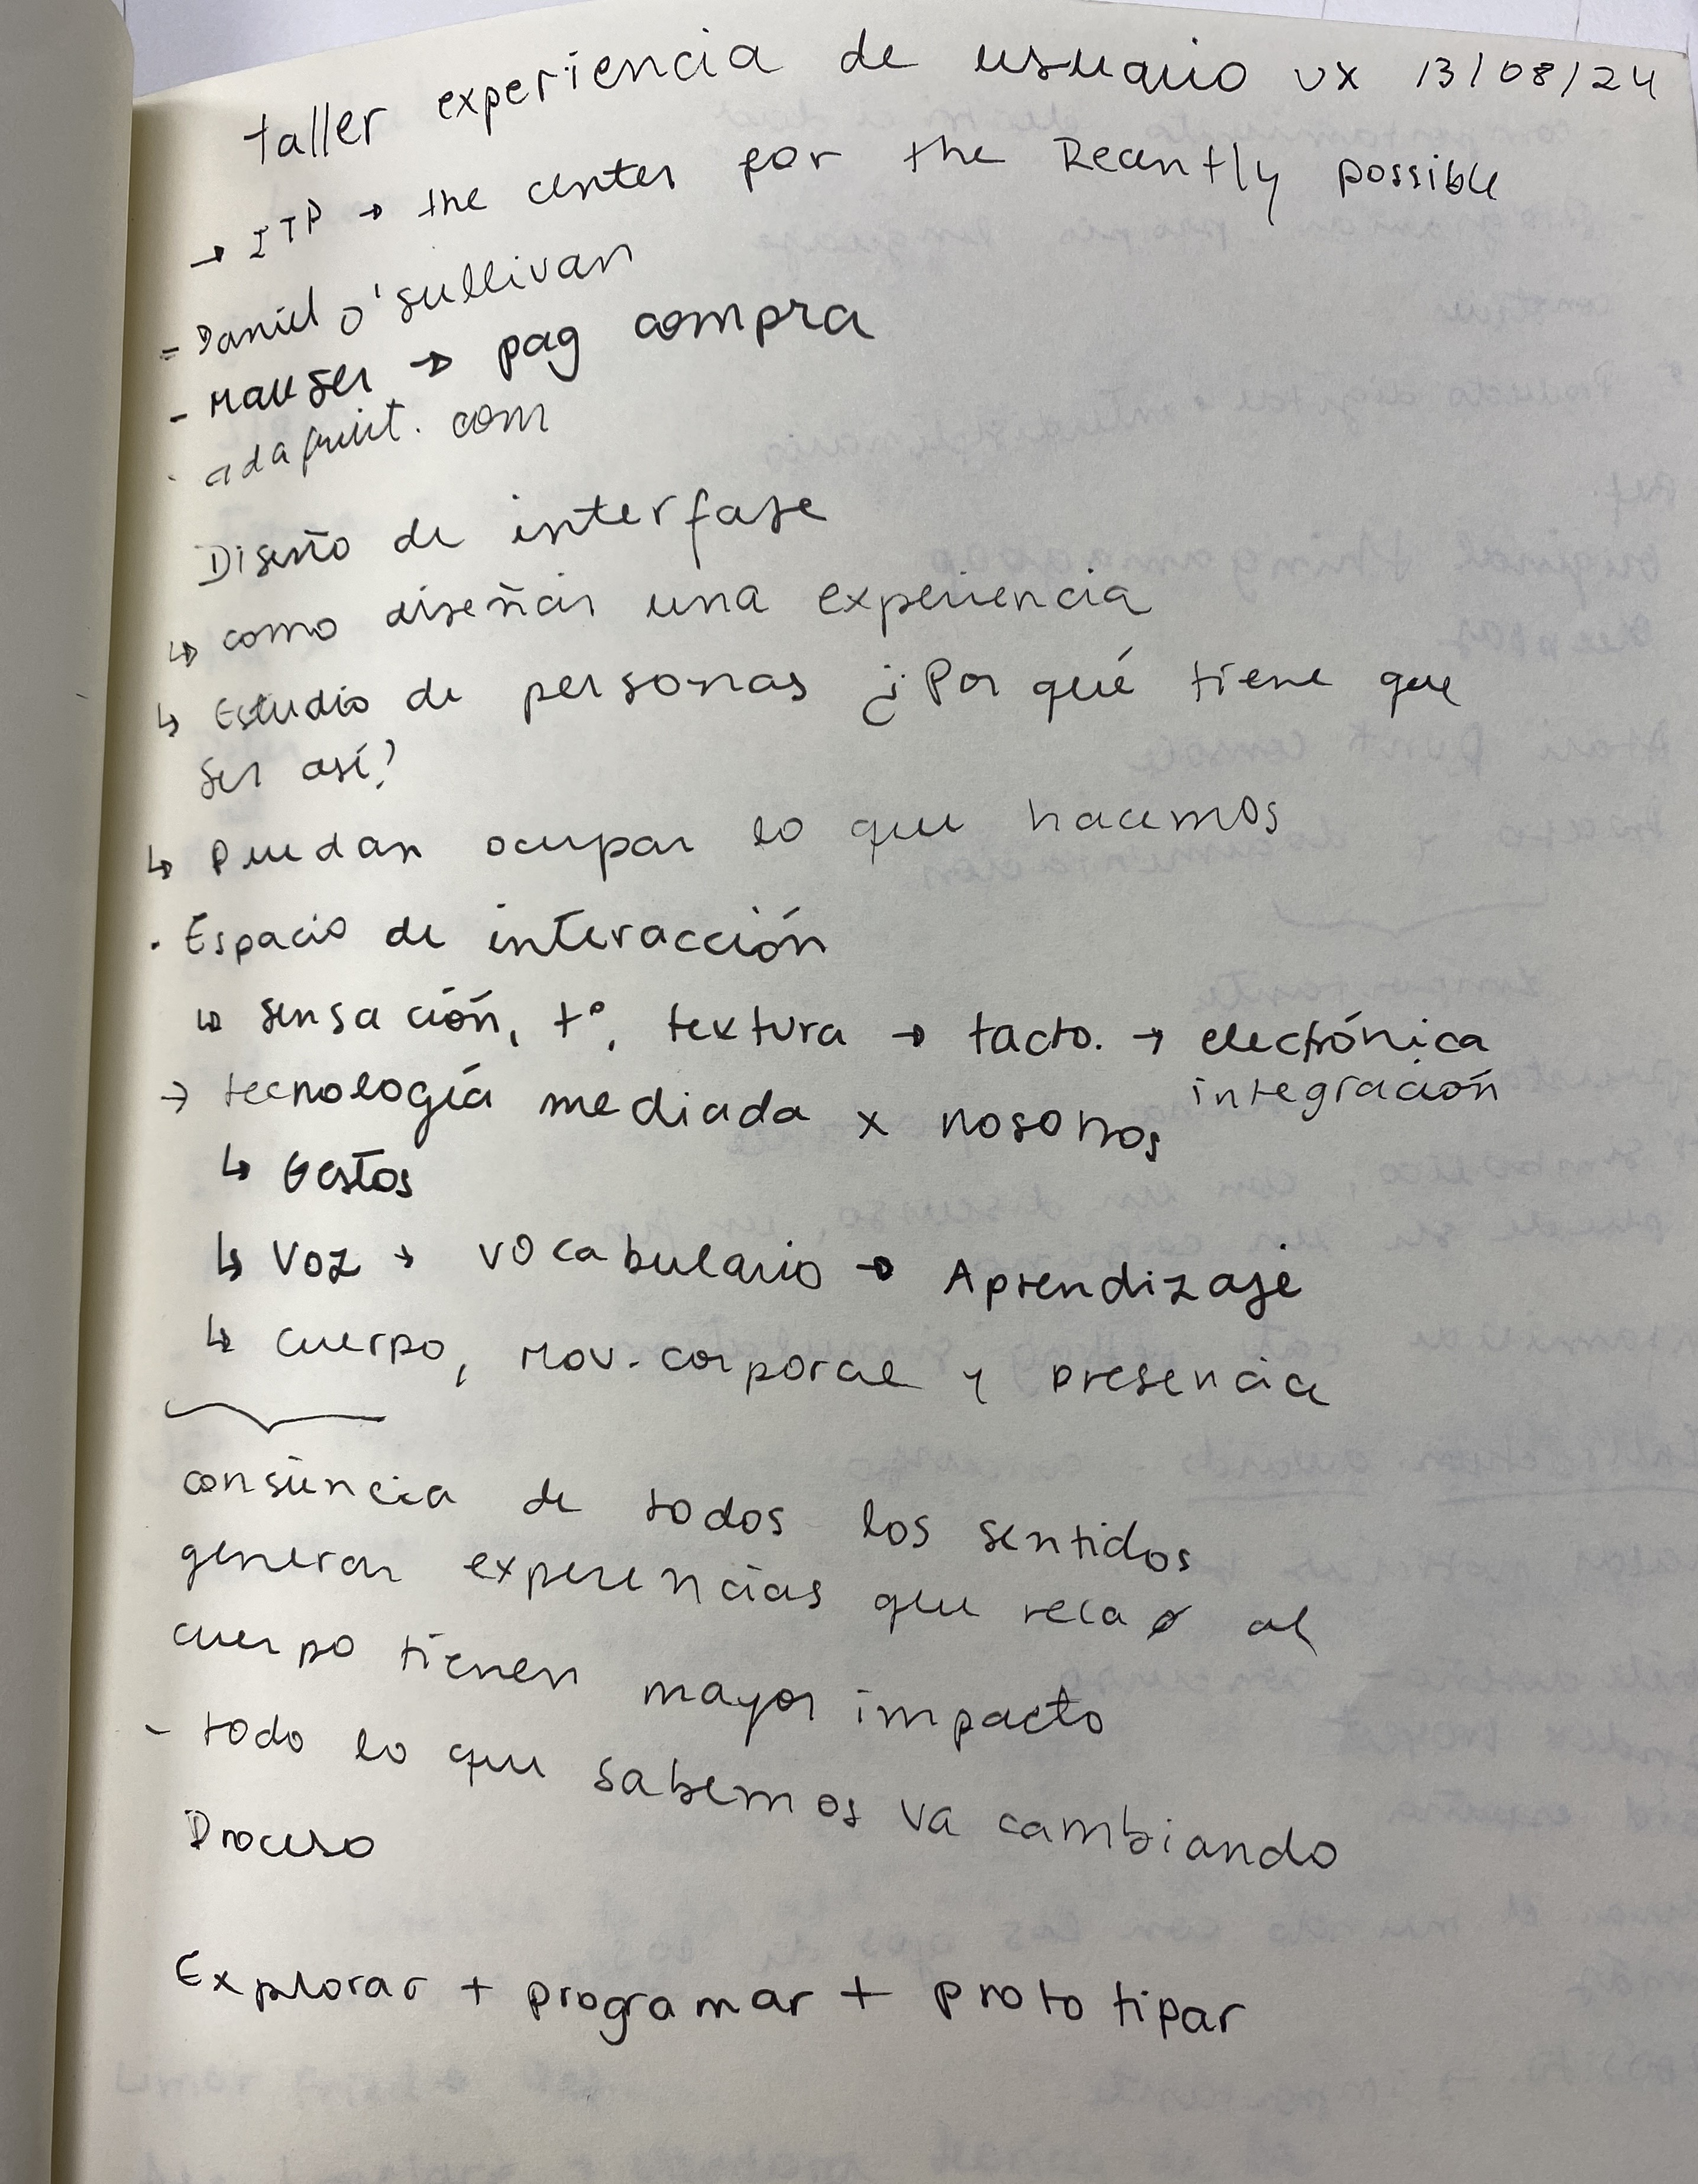 taller experiencia de usuario UX 13/08/24
→ ITP → the center for the Recently possible
- Daniel O'Sullivan
- Mauser → pag compra
· adafruit.com
Diseño de interfase
↳ como diseñar una experiencia
↳ Estudio de personas ¿Por qué tiene que
ser así?
↳ Puedan ocupar lo que hacemos
· Espacio de interacción
↳ sensación, t°, textura → tacto. → electrónica
integración
→ tecnología mediada x nosotros
↳ Gestos
↳ Voz → vocabulario → Aprendizaje
↳ cuerpo, mov. corporal y presencia
consiencia de todos los sentidos
generar experiencias que rela al
cuerpo tienen mayor impacto
- todo lo que sabemos va cambiando
Proceso
Explorar + programar + prototipar